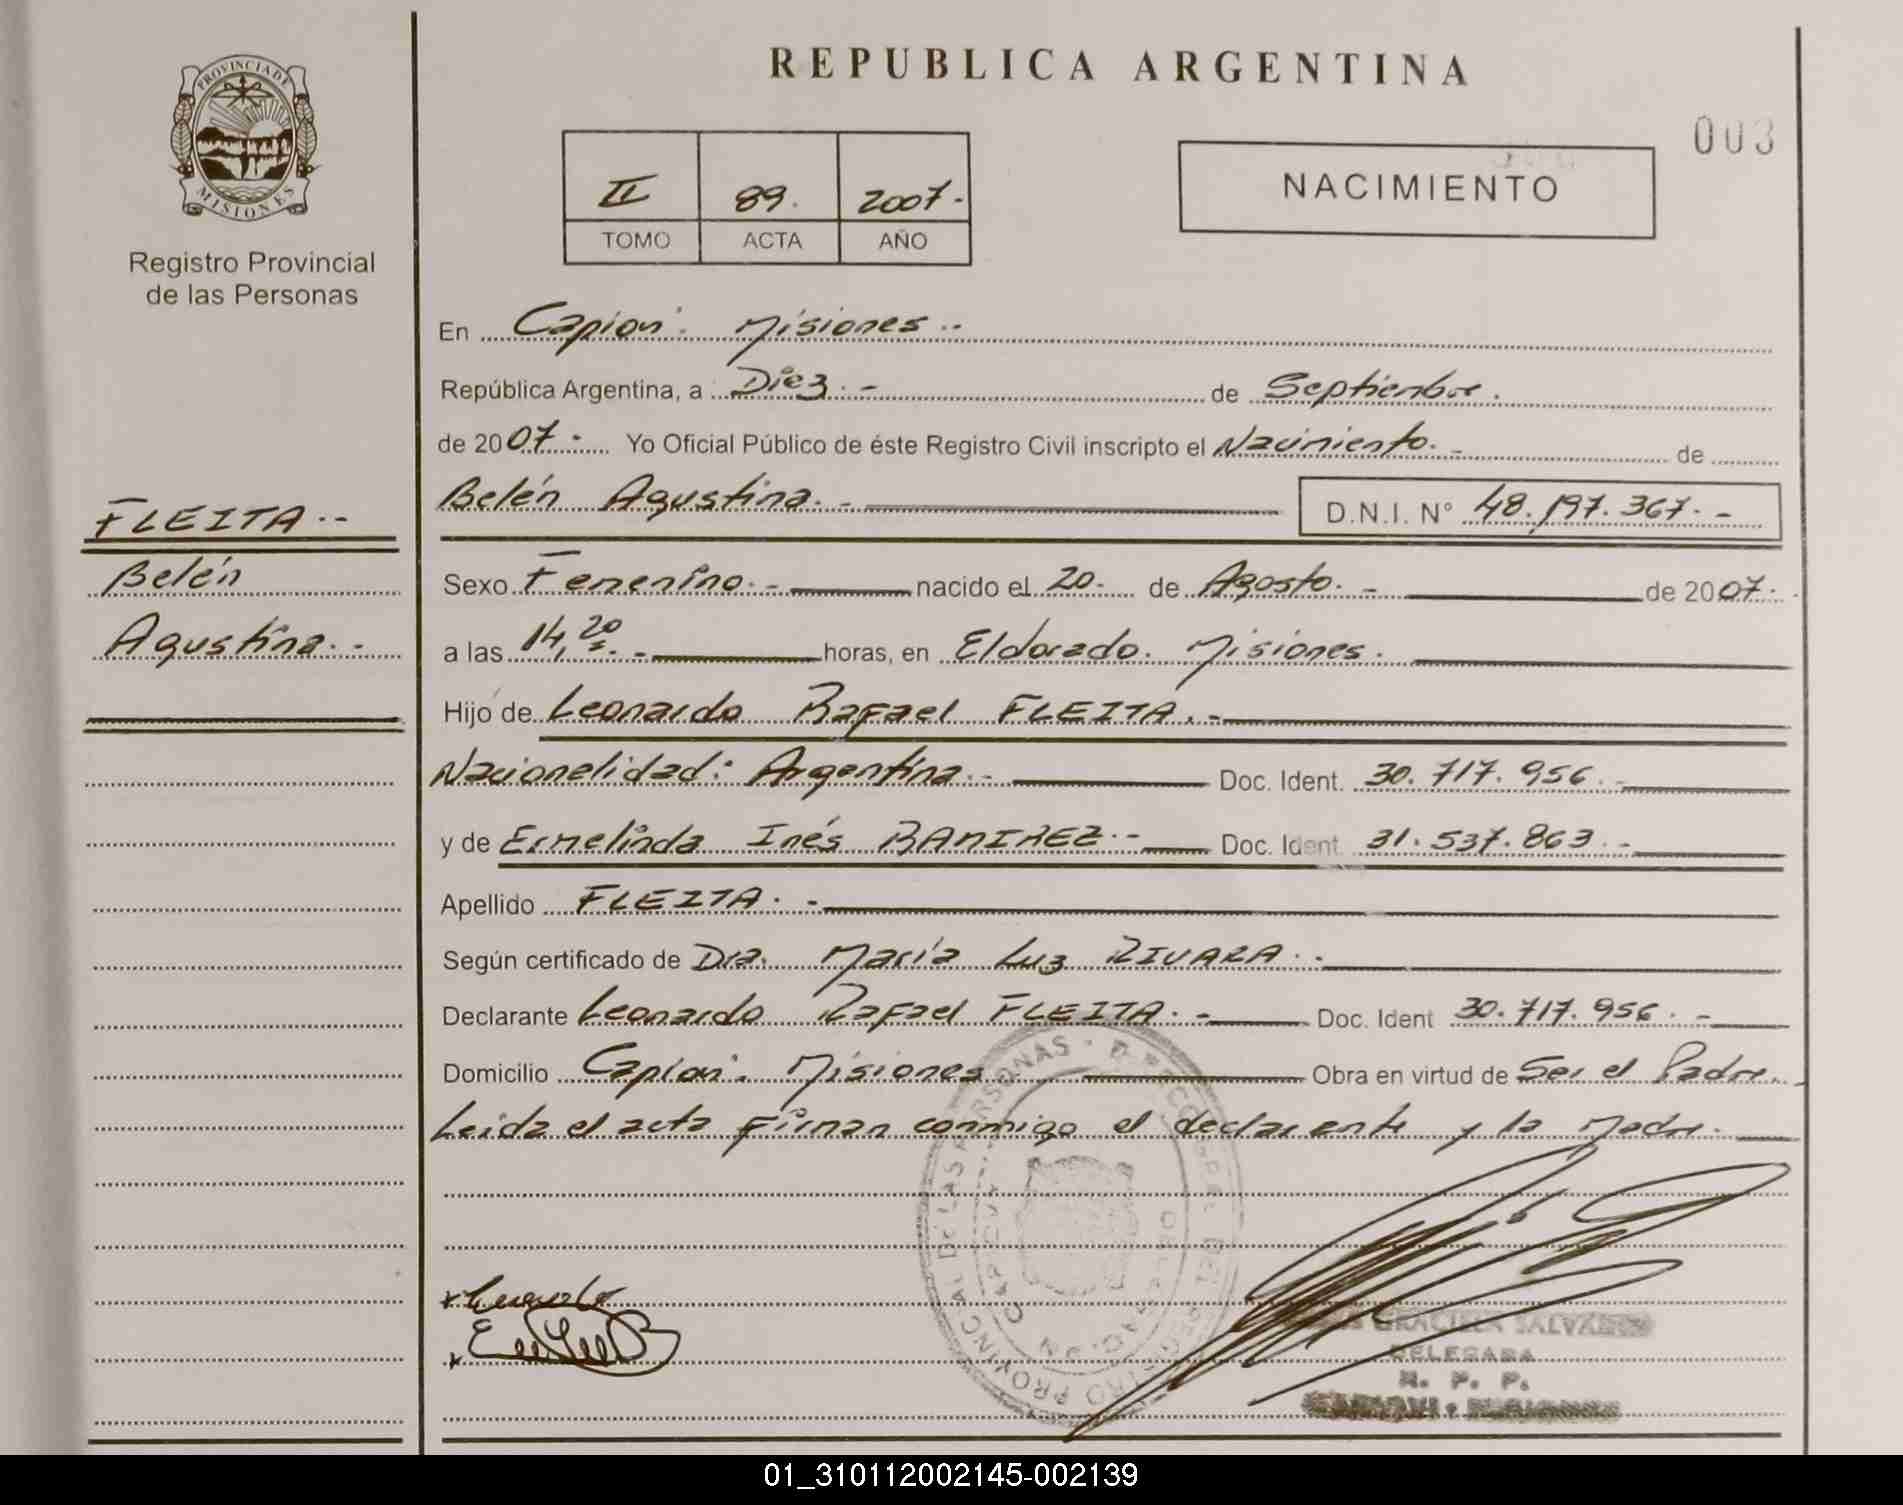 PROVINCIA DE
MISIONES
Registro Provincial
de las Personas
FLEITA.--
Belén
Agustina.-
REPUBLICA ARGENTINA
003
II 89. 2007.-
TOMO ACTA AÑO
NACIMIENTO
En Capioví. Misiones.-
República Argentina, a Diez.- de Septiembre.
de 2007.- Yo Oficial Público de éste Registro Civil inscripto el Nacimiento.- de
Belén Agustina.- D.N.I. N° 48.197.367.-
Sexo Femenino.- nacido el 20. de Agosto.- de 2007.
a las 14,20 s.- horas, en Eldorado. Misiones.
Hijo de Leonardo Rafael FLEITA.-
Nacionalidad: Argentina.- Doc. Ident. 30.717.956.-
y de Ermelinda Inés RAMIREZ.- Doc. Ident. 31.537.863.-
Apellido FLEITA.-
Según certificado de Dra. María Luz RIVARA.-
Declarante Leonardo Rafael FLEITA.- Doc. Ident 30.717.956.-
Domicilio Capioví. Misiones Obra en virtud de Ser el Padre.
Leida el acta firman conmigo el declarante y la Madre.
DIRECCION GRAL DEL REGISTRO PROVINCIAL DE LAS PERSONAS
DELEGACION CAPIOVI
GRACIELA
DELEGADA
R. P. P.
CAPIOVI - MISIONES
01_310112002145-002139